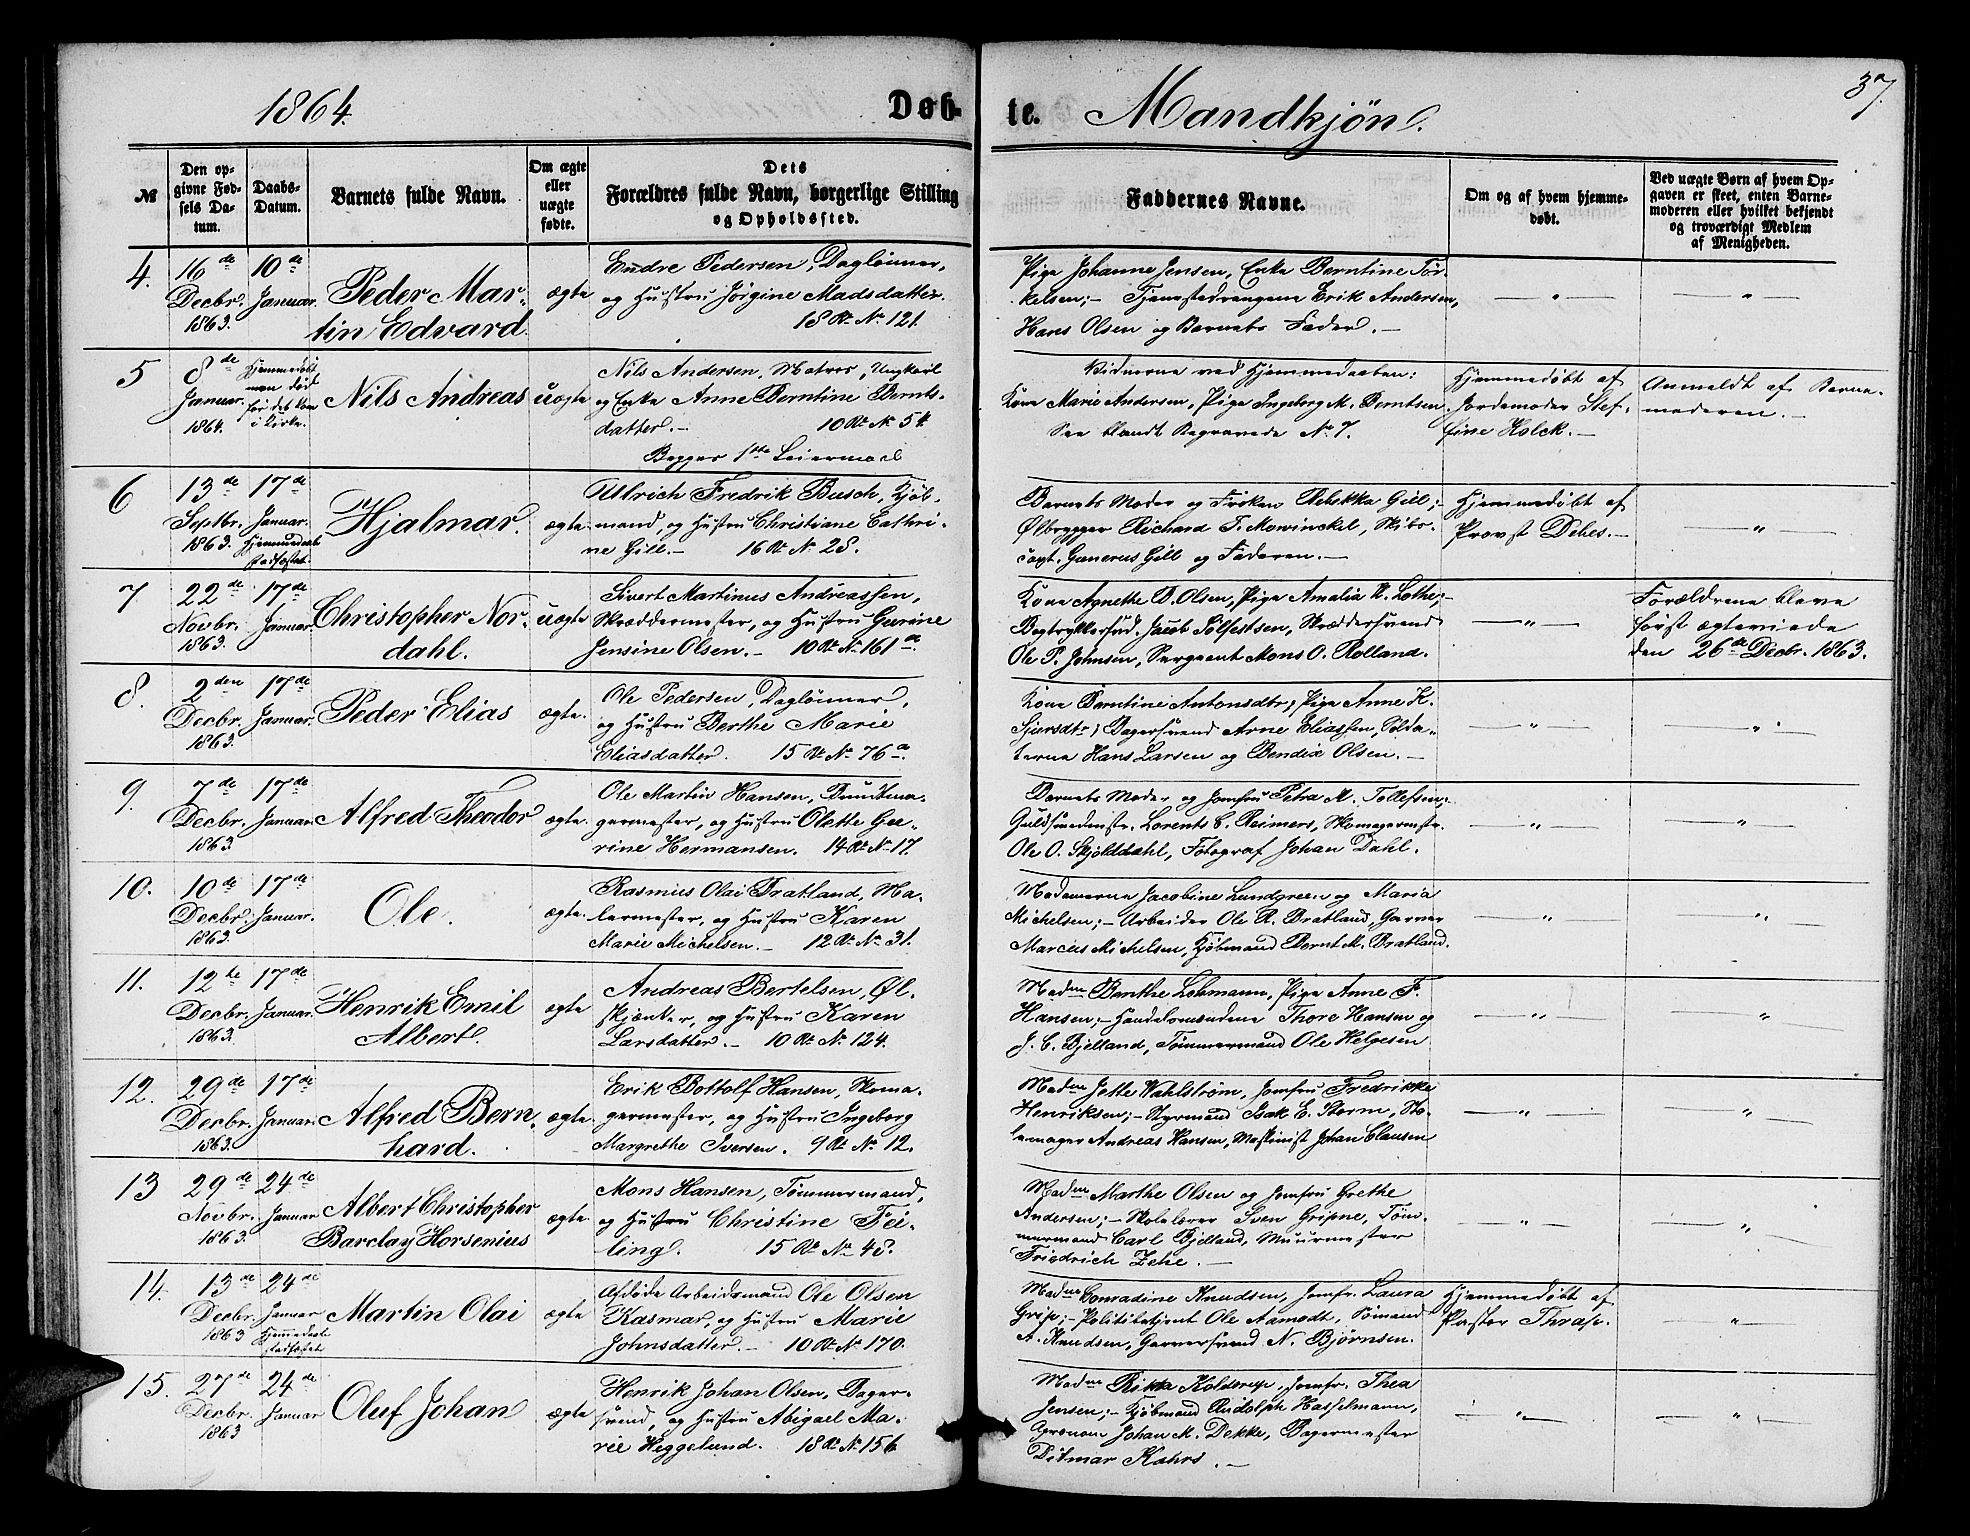 1864.
Døb-
te.
Mandkjøn.
37.
№
Den op-
givne Fød-
sels Da-
tum.
Daabs-
Datum.
Barnets fulde Navn.
Om ægte
eller
uægte
fødte.
Dets
Forældres fulde Navn, borgerlige Stilling
og Opholdssted.
Faddernes Navne.
Om og af hvem hjemme-
døbt.
Ved uægte Børn af hvem Op-
gaven er skeet, enten Barne-
moderen eller hvilket bekjendt
og troværdigt Medlem
af Menigheden.
4.
16de
Decbr.
1863.
10de
Januar.
Peder Mar-
tin Edvard
ægte
Endre Pedersen, Daglønner,
og Hustru Jørgine Madsdatter.
18 Rd. No 121.
Pige Johanne Jensen, Enke Berntine Tør-
kelsen; - Tjenestedrengene Erik Andersen,
Hans Olsen og Barnets Fader. -
— " —
— " —
5
8de
Januar.
1864.
Hjemmedøbt
men død
før det kom
i Kirke.
Nils Andreas
uægte
Nils Andersen, Matros, Ungkarl
og Enke Anne Berntine Bernts-
datter. - 10 Rd. No 54.
Begges 1ste Leiermaal
Vidnerne ved Hjemmedaaben:
Kone Marie Andersen, Pige Ingeborg M. Berntsen.
See blandt Begravede No 7.
Hjemmedøbt af
Jordemoder Stef-
fine Holck. -
Anmeldt af Barne-
moderen. -
6
13de
Septbr.
1863.
17de
Januar.
Hjemmedaab
stadfæstet.
Hjalmar.
ægte
Ulrich Fredrik Busch, Kjøb-
mand, og Hustru Christiane Cathri-
ne Gill. - 16 Rd. No 28.
Barnets Moder og Frøken Rebekka Gill; -
Ølbrygger Richard T. Mowinckel, Skibs-
capt. Gunerus Gill og Faderen. -
Hjemmedøbt af
Provst Debes. -
— " —
7
22de
Novbr.
1863.
17de
Januar.
Christopher Nor-
dahl.
uægte
Sivert Martinus Andreassen,
Skræddermester, og Hustru Gurine
Jensine Olsen. - 10 Rd. No 161a.
Kone Agnethe B. Olsen, Pige Amalia K. Lothe; -
Jacob Sølfestsen, Skræddersvend
Ole P. Johnsen, Sergeant Mons O. Rolland.
— " —
Forældrene bleve
først ægteviede
den 26de Decbr. 1863.
8.
2den
Decbr.
1863.
17de
Januar.
Peder Elias
ægte.
Ole Pedersen, Daglønner,
og Hustru Berthe Marie
Eliasdatter. 15 Rd. No 76a.
Kone Berntine Antonsdtr; Pige Anne K.
Sjursdtr; Bagersvend Arne Eliassen, Solda-
terne Hans Larsen og Bendix Olsen. -
— " —
— " —
9.
7de
Decbr.
1863.
17de
Januar.
Alfred Theodor
ægte.
Ole Martin Hansen, Bundtma-
germester, og Hustru Olette Gu-
rine Hermansen. 14 Rd. No 17.
Barnets Moder og Jomfru Petra M. Tollefsen; -
Guldsmedmstr. Lorents C. Reimers, Skomagermstr.
Ole O. Skjolddahl, Fotograf Johan Dahl.
— " —
— " —
10.
10de
Decbr.
1863.
17de
Januar.
Ole.
ægte.
Rasmus Olai Bratland, Ma-
lermester, og Hustru Karen
Marie Michelsen. - 12 Rd. No 31.
Madamerne Jacobine Lundgreen og Maria
Michelsen; - Arbeider Ole R. Bratland, Garver
Marcus Michelsen, Kjøbmand Bernt M. Bratland.
— " —
— " —
11.
12te
Decbr.
1863.
17de
Januar.
Henrik Emil
Albert.
ægte
Andreas Bertelsen, Øl-
skjænker, og Hustru Karen
Larsdatter. - 10 Rd. No 124.
Madme Benthe Lohmann, Pige Anne F.
Hansen; - Handelsmændene Thore Hansen og
J. C. Bjelland, Tømmermand Ole Helgesen
— " —
— " —
12.
29de
Decbr.
1863.
17de
Januar.
Alfred Bern-
hard.
ægte.
Erik Bottolf Hansen, Skoma-
germester, og Hustru Ingeborg
Margrethe Iversen. 9 Rd. No 12.
Madme Jette Wahlstrøm, Jomfru Fredrikke
Henriksen; - Styrmand Isak E. Storm, Sto-
lemager Andreas Hansen, Maskinist Johan Clausen
— " —
— " —
13
29de
Novbr.
1863.
24de
Januar
Albert Christopher
Barclay Horsenius
ægte.
Mons Hansen, Tømmermand,
og Hustru Christine Fei-
ling. 15 Rd. No 48.
Madme Marthe Olsen og Jomfru Grethe
Andersen; - Skolelærer Sven Gripne, Tøm-
mermand Carl Bjelland, Muurmester
Friedrich Zehe. -
— " —
— " —
14.
13de
Decbr.
1863
24de
Januar
Hjemmedaab
stadfæstet
Martin Olai
ægte
Afdøde Arbeidsmand Ole Olsen
Kasmar, og Hustru Marie
Johnsdatter. - 10 Rd. No 170.
Madme Conradine Knudsen, Jomfr. Laura
Grip; - Politibetjent Ole Aamodt, Sømand
A. Knudsen, Garversvend N. Bjørnsen.
Hjemmedøbt af
Pastor Thrap.
— " —
15.
27de
Decbr.
1863
24de
Januar
Oluf Johan
ægte
Henrik Johan Olsen, Bager-
svend, og Hustru Abigael Ma-
rie Wiggelund. 18 Rd. No 156
Madme Rikka Kolderup, Jomfr. Thea
Jensen; - Kjøbmand Rudolph Hasselmann,
Johan M. Dekke, Bagermester
Ditmar Kahrs. -
— " —
— " —